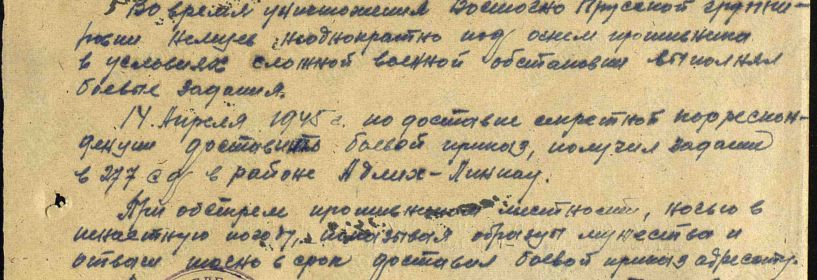 5 Во время уничтожения Восточно Прусской группи-
ровки немцев неоднократно под огнем противника
в условиях сложной военной обстановки выполнял
боевые задания.
14 Апреля 1945 г. по доставке секретной корреспон-
денции доставить боевой приказ, получил задание
в 277 сд в районе Адлих-Линкау.
При обстреле противником местности, ночью в
ненастную погоду, показывая образцы мужества и
отваги точно в срок доставил боевой приказ адресату.